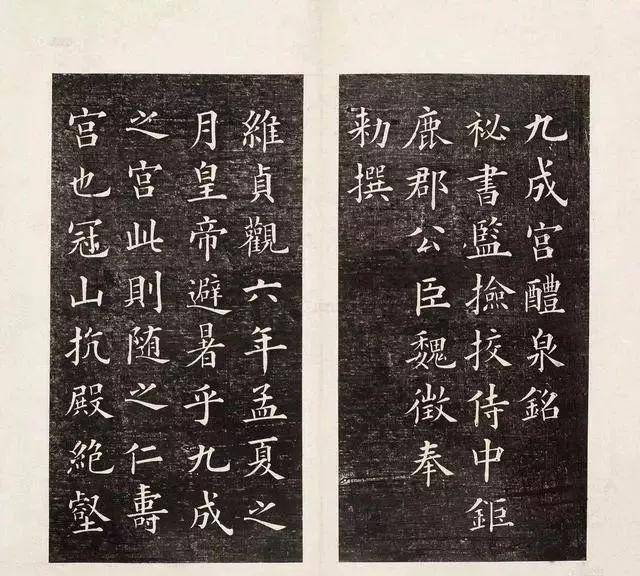 九成宫醴泉銘
秘書監撿挍侍中鉅
鹿郡公臣魏徴奉
勑撰
維貞觀六年孟夏之
月皇帝避暑乎九成
之宫此則随之仁壽
宫也冠山抗殿絶壑